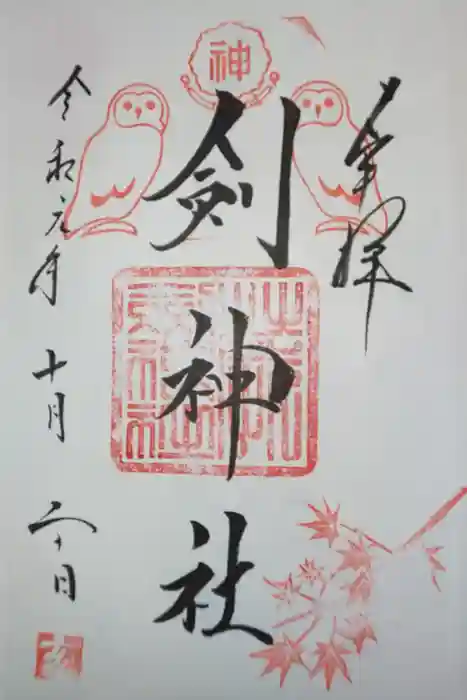 奉拝
神
劔神社
令和元年十月二十日